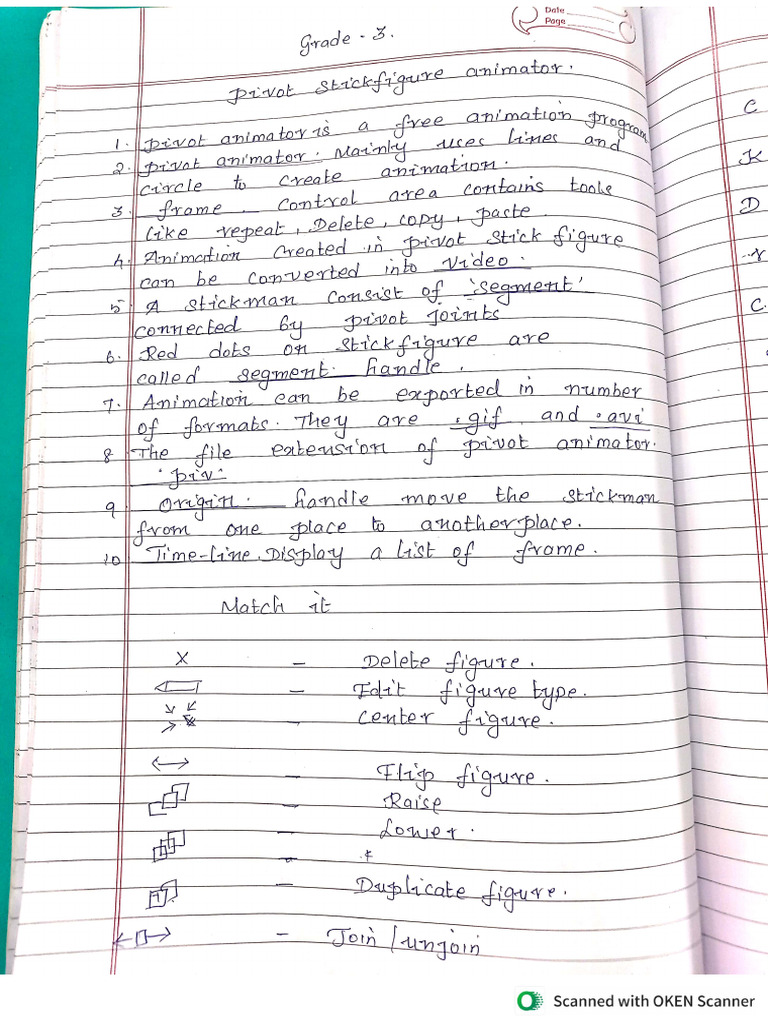 Date
Page
Grade - 3.
Pivot Stickfigure animator.
1. Pivot animator is a free animation program
2. pivot animator. Mainly uses lines and
circle to create animation.
3. frame control area contains tools
like repeat, Delete, copy, paste
4. Animation Created in pivot Stick figure
can be converted into video.
5. A stickman consist of 'segment'
connected by pivot joints
6. Red dots on stickfigure are
called segment handle.
7. Animation can be exported in number
of formats. They are .gif and .avi
8 The file extension of pivot animator.
.piv.
9. origin. handle move the stickman
from one place to another place.
10. Time-line Display a list of frame.
Match it
X - Delete figure.
- Edit figure type.
- Center figure.
- Flip figure.
- Raise
- Lower.
- Duplicate figure.
- Join / unjoin
C
K
D
C
Scanned with OKEN Scanner